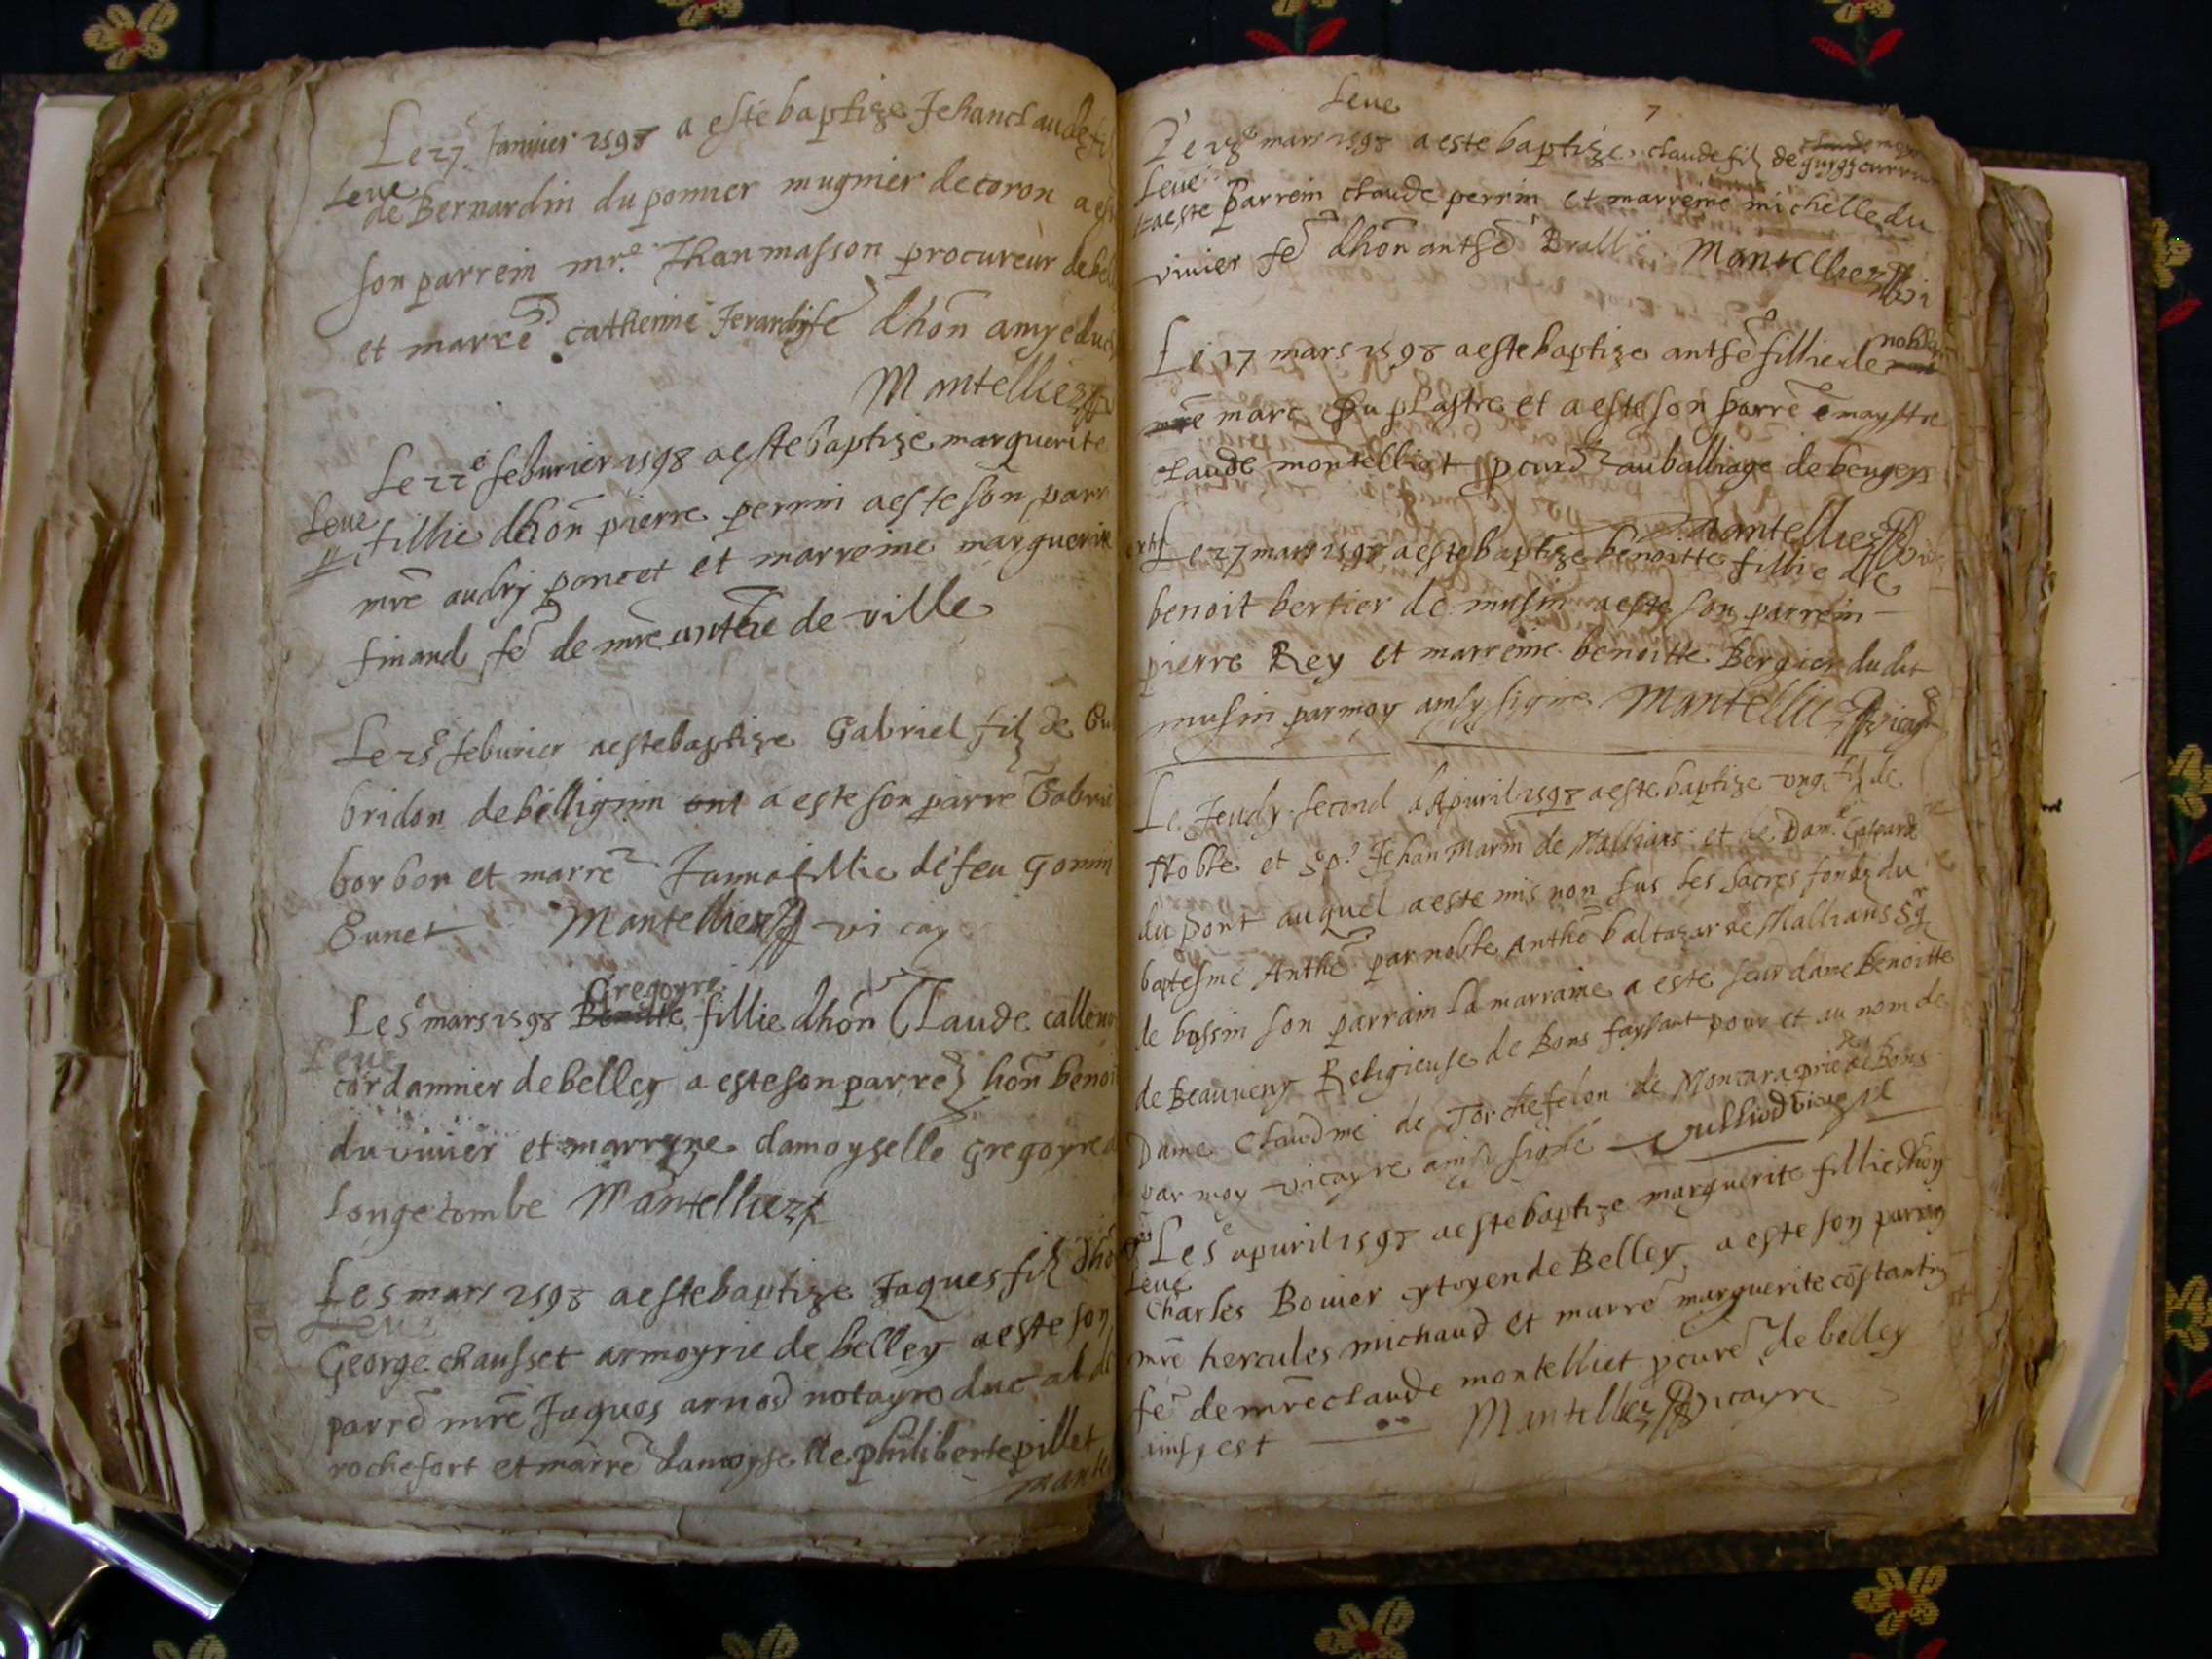 Le 27 Janvier 1598 a esté baptize Jehanclaude fil
Leue
de Bernardin du ponnier mugnier de coron a est
son parrein mre. Jhan masson procureur de bel
et marre catherine Jerardy fe dhon amye duc
Mantellier
Le 22e feburier 1598 a este baptize marguerite
Leue
fillie dhon pierre perrin a este son parr
mre audry poncet et marreine marguerite
finand fe de mre anthe de ville
Le 25e feburier a este baptize Gabriel filz de Gu
bridon de bellignin ont a este son parre Gabrie
borbon et marre Janna fillie de feu Gonin
Gunet Mantellier vicay
Gregoyre
Le 5e mars 1598 Benoitte fillie dhon Claude callou
Leue
cordannier de belley a este son parre hon benoi
du viuier et marryne damoyselle Gregoyre d
Longecombe Mantellier
Le 5 mars 1598 a este baptize Jaques filz dho
Leue
George chausset armoyrie de belley a este son
parre mre Jaques arnod notayre duc al de
rochefort et marre damoyselle philiberte pillet
mante
Leue 7
Le 15e mars 1598 a este baptize claude filz de
Leue
a este parrein claude perrin et marreine michelle du
viuier fe dhon anthe Brallie Mantellier
Le 17 mars 1598 a este baptize anthe fillie de noble
mre marc Du plastre et a este son parre maystre
claude montelliet pcur au balliage de beugeys
Mantellier
Le 27 mars 1598 a este baptize benoitte fillie de
benoit bertier de musin a este son parrein
pierre Rey et marreine benoitte Bergier dudit
musin par moy ainsy signe Mantellier vicayr
Le Jeudy second dapuril 1598 a este baptize ung filz de
Noble et Sp. Jehan Marin de Mallians et de Dame Gasparde
du pont auquel a este mis non sus les sacres fondz du
baptesme Anthe par noble Antho baltazar de Mallians Sgr
de bossin son parrain la marraine a este seur dame Benoitte
de Beauueny Religieuse de Bons faysant pour et au nom de
Dame Claudine de Torchefelon de Moncara prieuse de Bons
par moy vicayre ainsi signé Julliod vicayre
Le 5e apuril 1598 a este baptize marguerite fillie dhon
Leue
Charles Bouier cytoyen de Belley a este son parrein
mre hercules michaud et marre marguerite costantin
fe de mre claude montelliet pcure de belley
ainsy est Mantellier vicayre